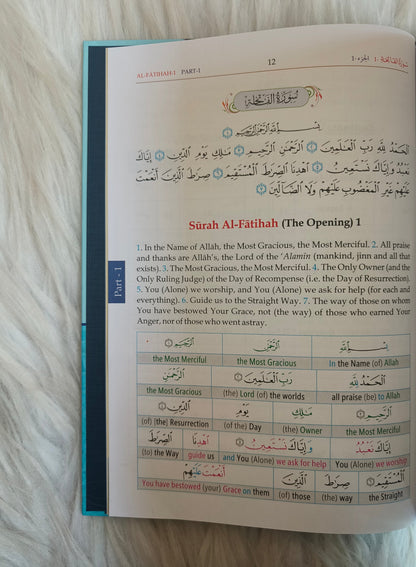 AL-FĀTIHAH-1 PART-1 12 الجزء-1 سورة الفاتحة-1
سُورَةُ الفَاتِحَةِ
بِسْمِ اللَّهِ الرَّحْمَٰنِ الرَّحِيمِ ١
الْحَمْدُ لِلَّهِ رَبِّ الْعَالَمِينَ ٢ الرَّحْمَٰنِ الرَّحِيمِ ٣ مَالِكِ يَوْمِ الدِّينِ ٤ إِيَّاكَ
نَعْبُدُ وَإِيَّاكَ نَسْتَعِينُ ٥ اهْدِنَا الصِّرَاطَ الْمُسْتَقِيمَ ٦ صِرَاطَ الَّذِينَ أَنْعَمْتَ
عَلَيْهِمْ غَيْرِ الْمَغْضُوبِ عَلَيْهِمْ وَلَا الضَّالِّينَ ٧
Sūrah Al-Fātihah (The Opening) 1
1. In the Name of Allāh, the Most Gracious, the Most Merciful. 2. All praise
and thanks are Allāh's, the Lord of the 'Alamin (mankind, jinn and all that
exists). 3. The Most Gracious, the Most Merciful. 4. The Only Owner (and the
Only Ruling Judge) of the Day of Recompense (i.e. the Day of Resurrection).
5. You (Alone) we worship, and You (Alone) we ask for help (for each and
everything). 6. Guide us to the Straight Way. 7. The way of those on whom
You have bestowed Your Grace, not (the way) of those who earned Your
Anger, nor of those who went astray.
Part - 1
بِسْمِ اللَّهِ الرَّحْمَٰنِ الرَّحِيمِ ١
In the Name (of) Allah the Most Gracious the Most Merciful
الْحَمْدُ لِلَّهِ رَبِّ الْعَالَمِينَ ٢ الرَّحْمَٰنِ
all praise (be) to Allah (the) Lord (of) the worlds the Most Gracious
الرَّحِيمِ ٣ مَالِكِ يَوْمِ الدِّينِ ٤
the Most Merciful (the) Owner (of) the Day (of) (the) Resurrection
إِيَّاكَ نَعْبُدُ وَإِيَّاكَ نَسْتَعِينُ ٥ اهْدِنَا الصِّرَاطَ
You (Alone) we worship and You (Alone) we ask for help guide us (to) the Way
الْمُسْتَقِيمَ ٦ صِرَاطَ الَّذِينَ أَنْعَمْتَ عَلَيْهِمْ
the Straight (the) way (of) those You have bestowed (your) Grace on them